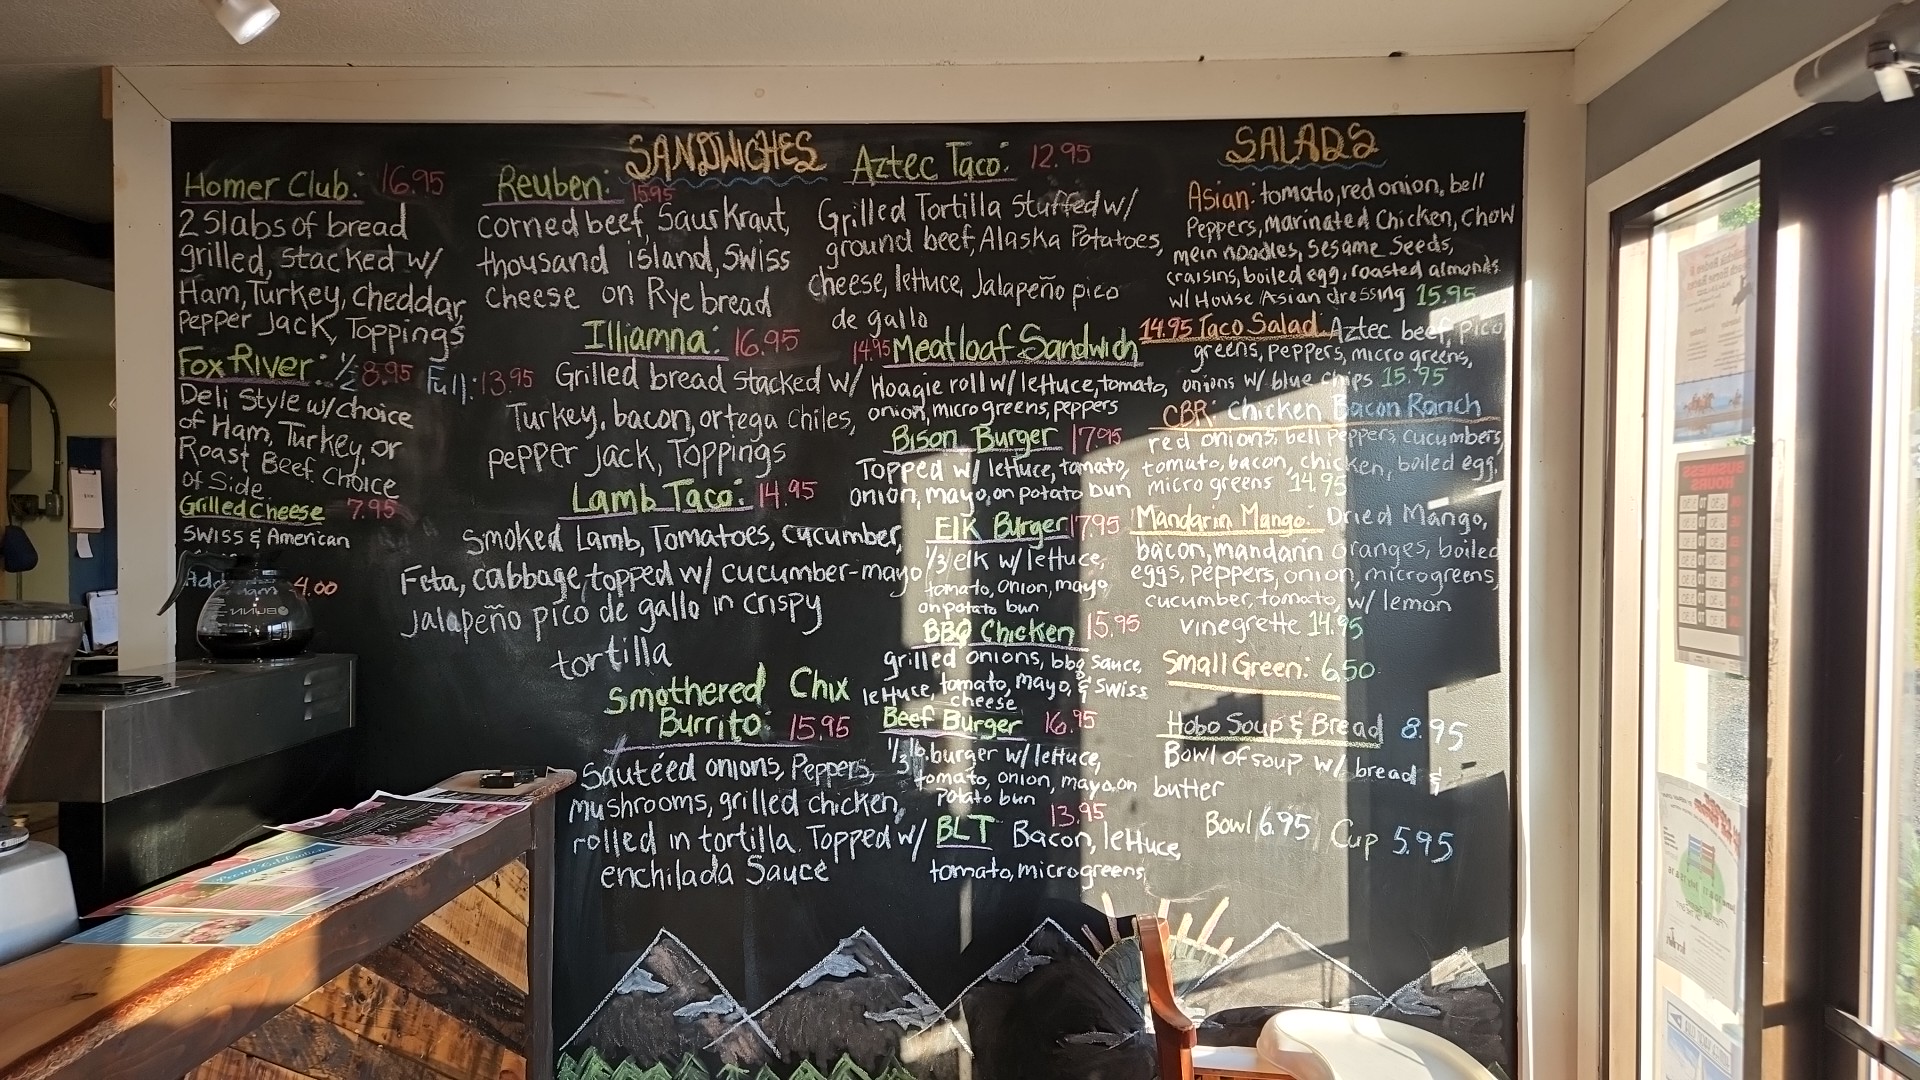 SANDWICHES
Homer Club: 16.95
2 Slabs of bread
grilled, stacked w/
Ham, Turkey, Cheddar,
Pepper Jack, Toppings
Fox River: 1/2 8.95 Full: 13.95
Deli Style w/choice
of Ham, Turkey, or
Roast Beef. Choice
of Side.
Grilled Cheese 7.95
Swiss & American
Add 4.00
BUNN
Reuben: 15.95
corned beef, SaurKraut,
thousand island, Swiss
Cheese on Rye bread
Illiamna: 16.95
Grilled bread stacked w/
Turkey, bacon, ortega chiles,
pepper jack, Toppings
Lamb Taco: 14.95
Smoked Lamb, Tomatoes, cucumber,
Feta, cabbage, topped w/ cucumber-mayo
Jalapeño pico de gallo in crispy
tortilla
Smothered Chix
Burrito: 15.95
Sautéed onions, Peppers,
mushrooms, grilled chicken,
rolled in tortilla. Topped w/
enchilada Sauce
Aztec Taco: 12.95
Grilled Tortilla Stuffed w/
ground beef, Alaska Potatoes,
cheese, lettuce, Jalapeño pico
de gallo
14.95 Meatloaf Sandwich
Hoagie roll w/ lettuce, tomato,
onion, micro greens, peppers
Bison Burger 17.95
Topped w/ lettuce, tomato,
onion, mayo, on potato bun
Elk Burger 17.95
1/3 elk w/ lettuce,
tomato, onion, mayo,
on potato bun
BBQ Chicken 15.95
grilled onions, bbq sauce,
lettuce, tomato, mayo, & swiss
cheese
Beef Burger 16.95
1/3 lb. burger w/ lettuce,
tomato, onion, mayo, on
potato bun
13.95
BLT Bacon, lettuce,
tomato, microgreens,
SALADS
Asian: tomato, red onion, bell
Peppers, marinated Chicken, Chow
mein noodles, Sesame Seeds,
craisins, boiled egg, roasted almonds
w/ House Asian dressing 15.95
14.95 Taco Salad: Aztec beef, pico,
greens, peppers, micro greens,
onions w/ blue chips 15.95
CBR: Chicken Bacon Ranch
red onions, bell peppers, cucumbers,
tomato, bacon, chicken, boiled egg,
micro greens 14.95
Mandarin Mango: Dried Mango,
bacon, mandarin oranges, boiled
eggs, peppers, onion, microgreens,
cucumber, tomato, w/ lemon
vinegrette 14.95
Small Green: 6.50
Hobo Soup & Bread 8.95
Bowl of soup w/ bread &
butter
Bowl 6.95 Cup 5.95
BUSINESS
HOURS